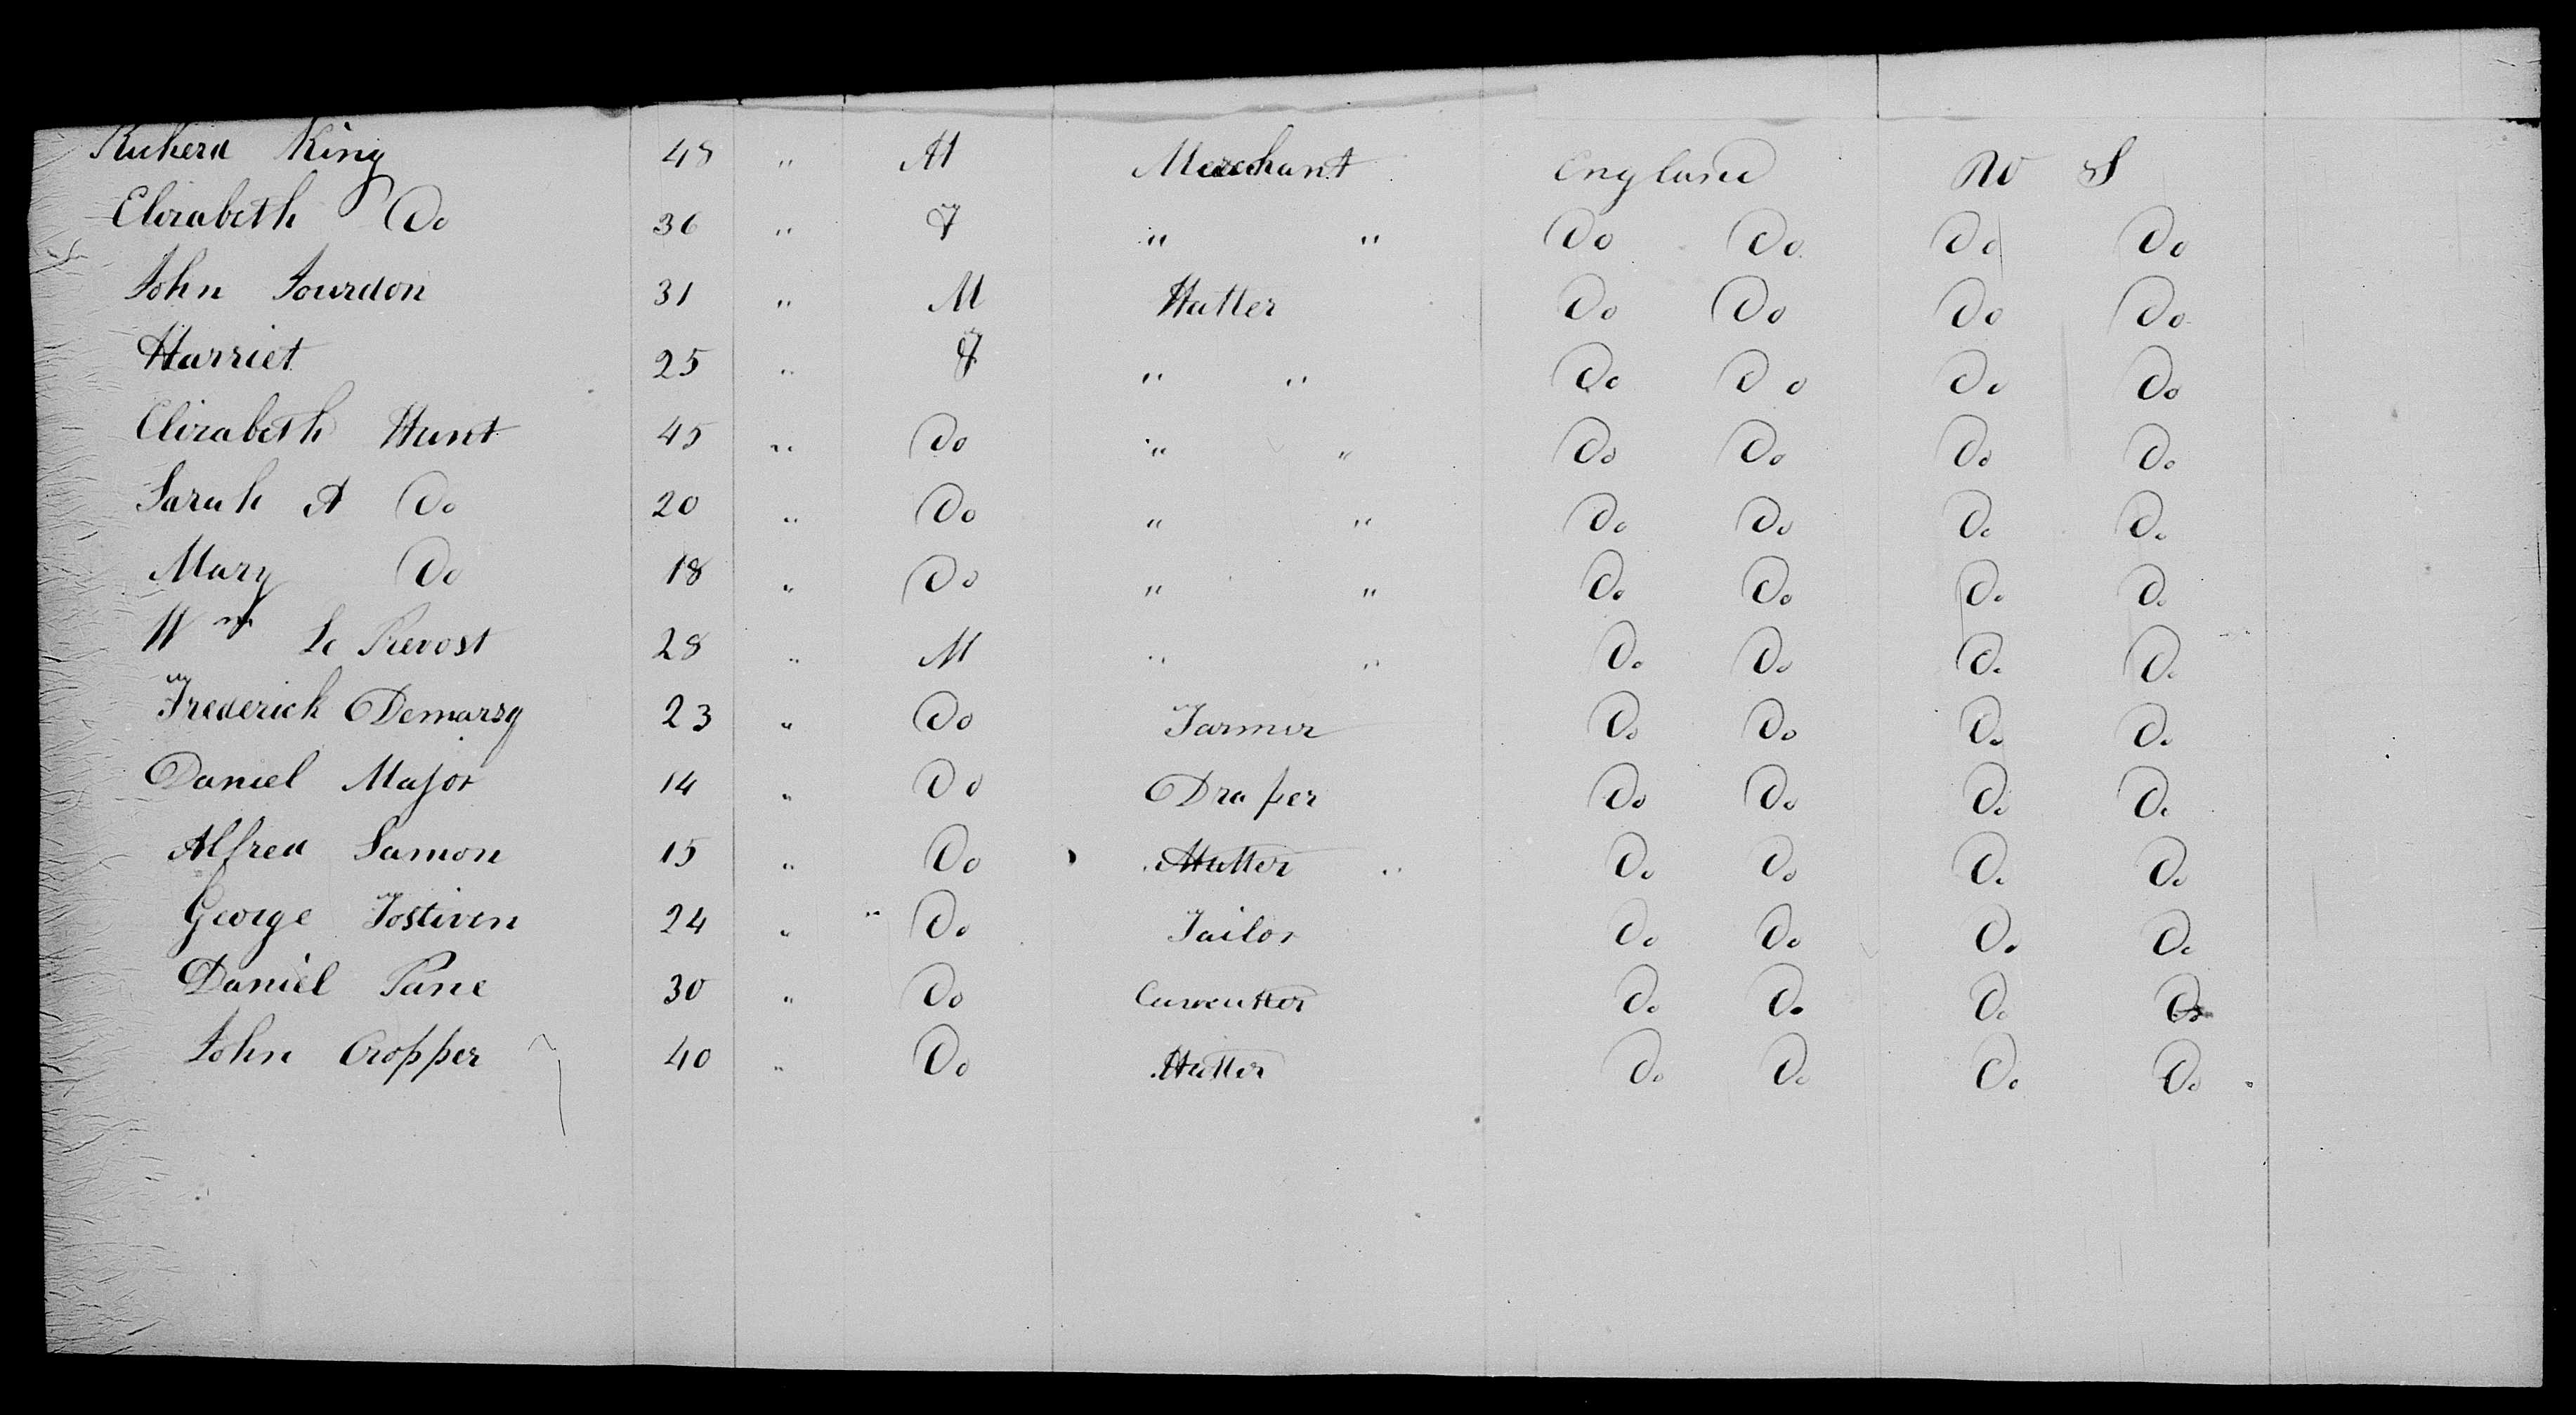 Richard King 48 " M Merchant England U S
Elizabeth Do 36 " F " " Do Do Do Do
John Jourdon 31 " M Hatter Do Do Do Do
Harriet 25 " F " " Do Do Do Do
Elizabeth Hunt 45 " Do " " Do Do Do Do
Sarah A Do 20 " Do " " Do Do Do Do
Mary Do 18 " Do " " Do Do Do Do
Wm Le Prevost 28 " M " " Do Do Do Do
Frederick Demarsy 23 " Do Farmer Do Do Do Do
Daniel Major 14 " Do Draper Do Do Do Do
Alfred Samon 15 " Do Hatter " Do Do Do Do
George 24 " " Do Tailor Do Do Do Do
Daniel Pane 30 " Do Do Do Do Do
John Cropper 40 " Do Hatter Do Do Do Do